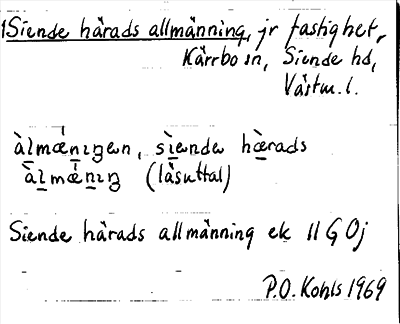 1Siende härads allmänning, jr fastighet,
Kärrbo sn, Siende hd,
Västm. l.
àlmǽnıŋen, sìende hæ̀rads
àlmǽnıŋ (läsuttal)
Siende härads allmänning ek 11 G 0j
P.O. Kohls 1969